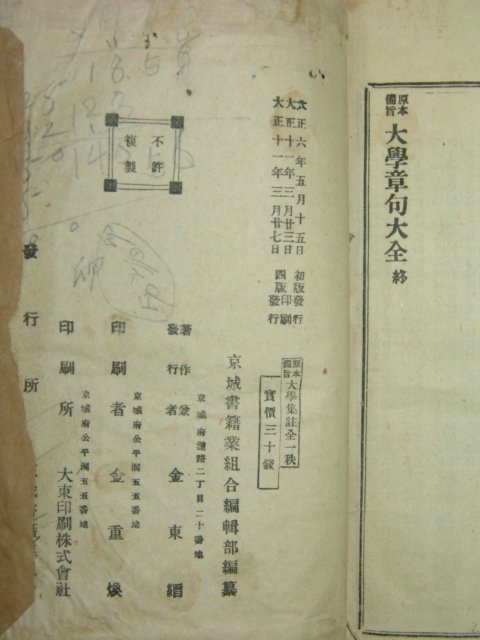 原本備旨 大學章句大全 終
大正六年五月十五日 初版發行
大正十一年三月廿三日 四版印刷
大正十一年三月廿七日 四版發行
不許複製
原本備旨 大學集註全一秩
實價三十錢
京城書籍業組合編輯部編纂
二丁目二十番地
著作兼發行者 金東縉
京城府公平洞五五番地
印刷者 金重煥
京城府公平洞五五番地
印刷所 大東印刷株式會社
發行所